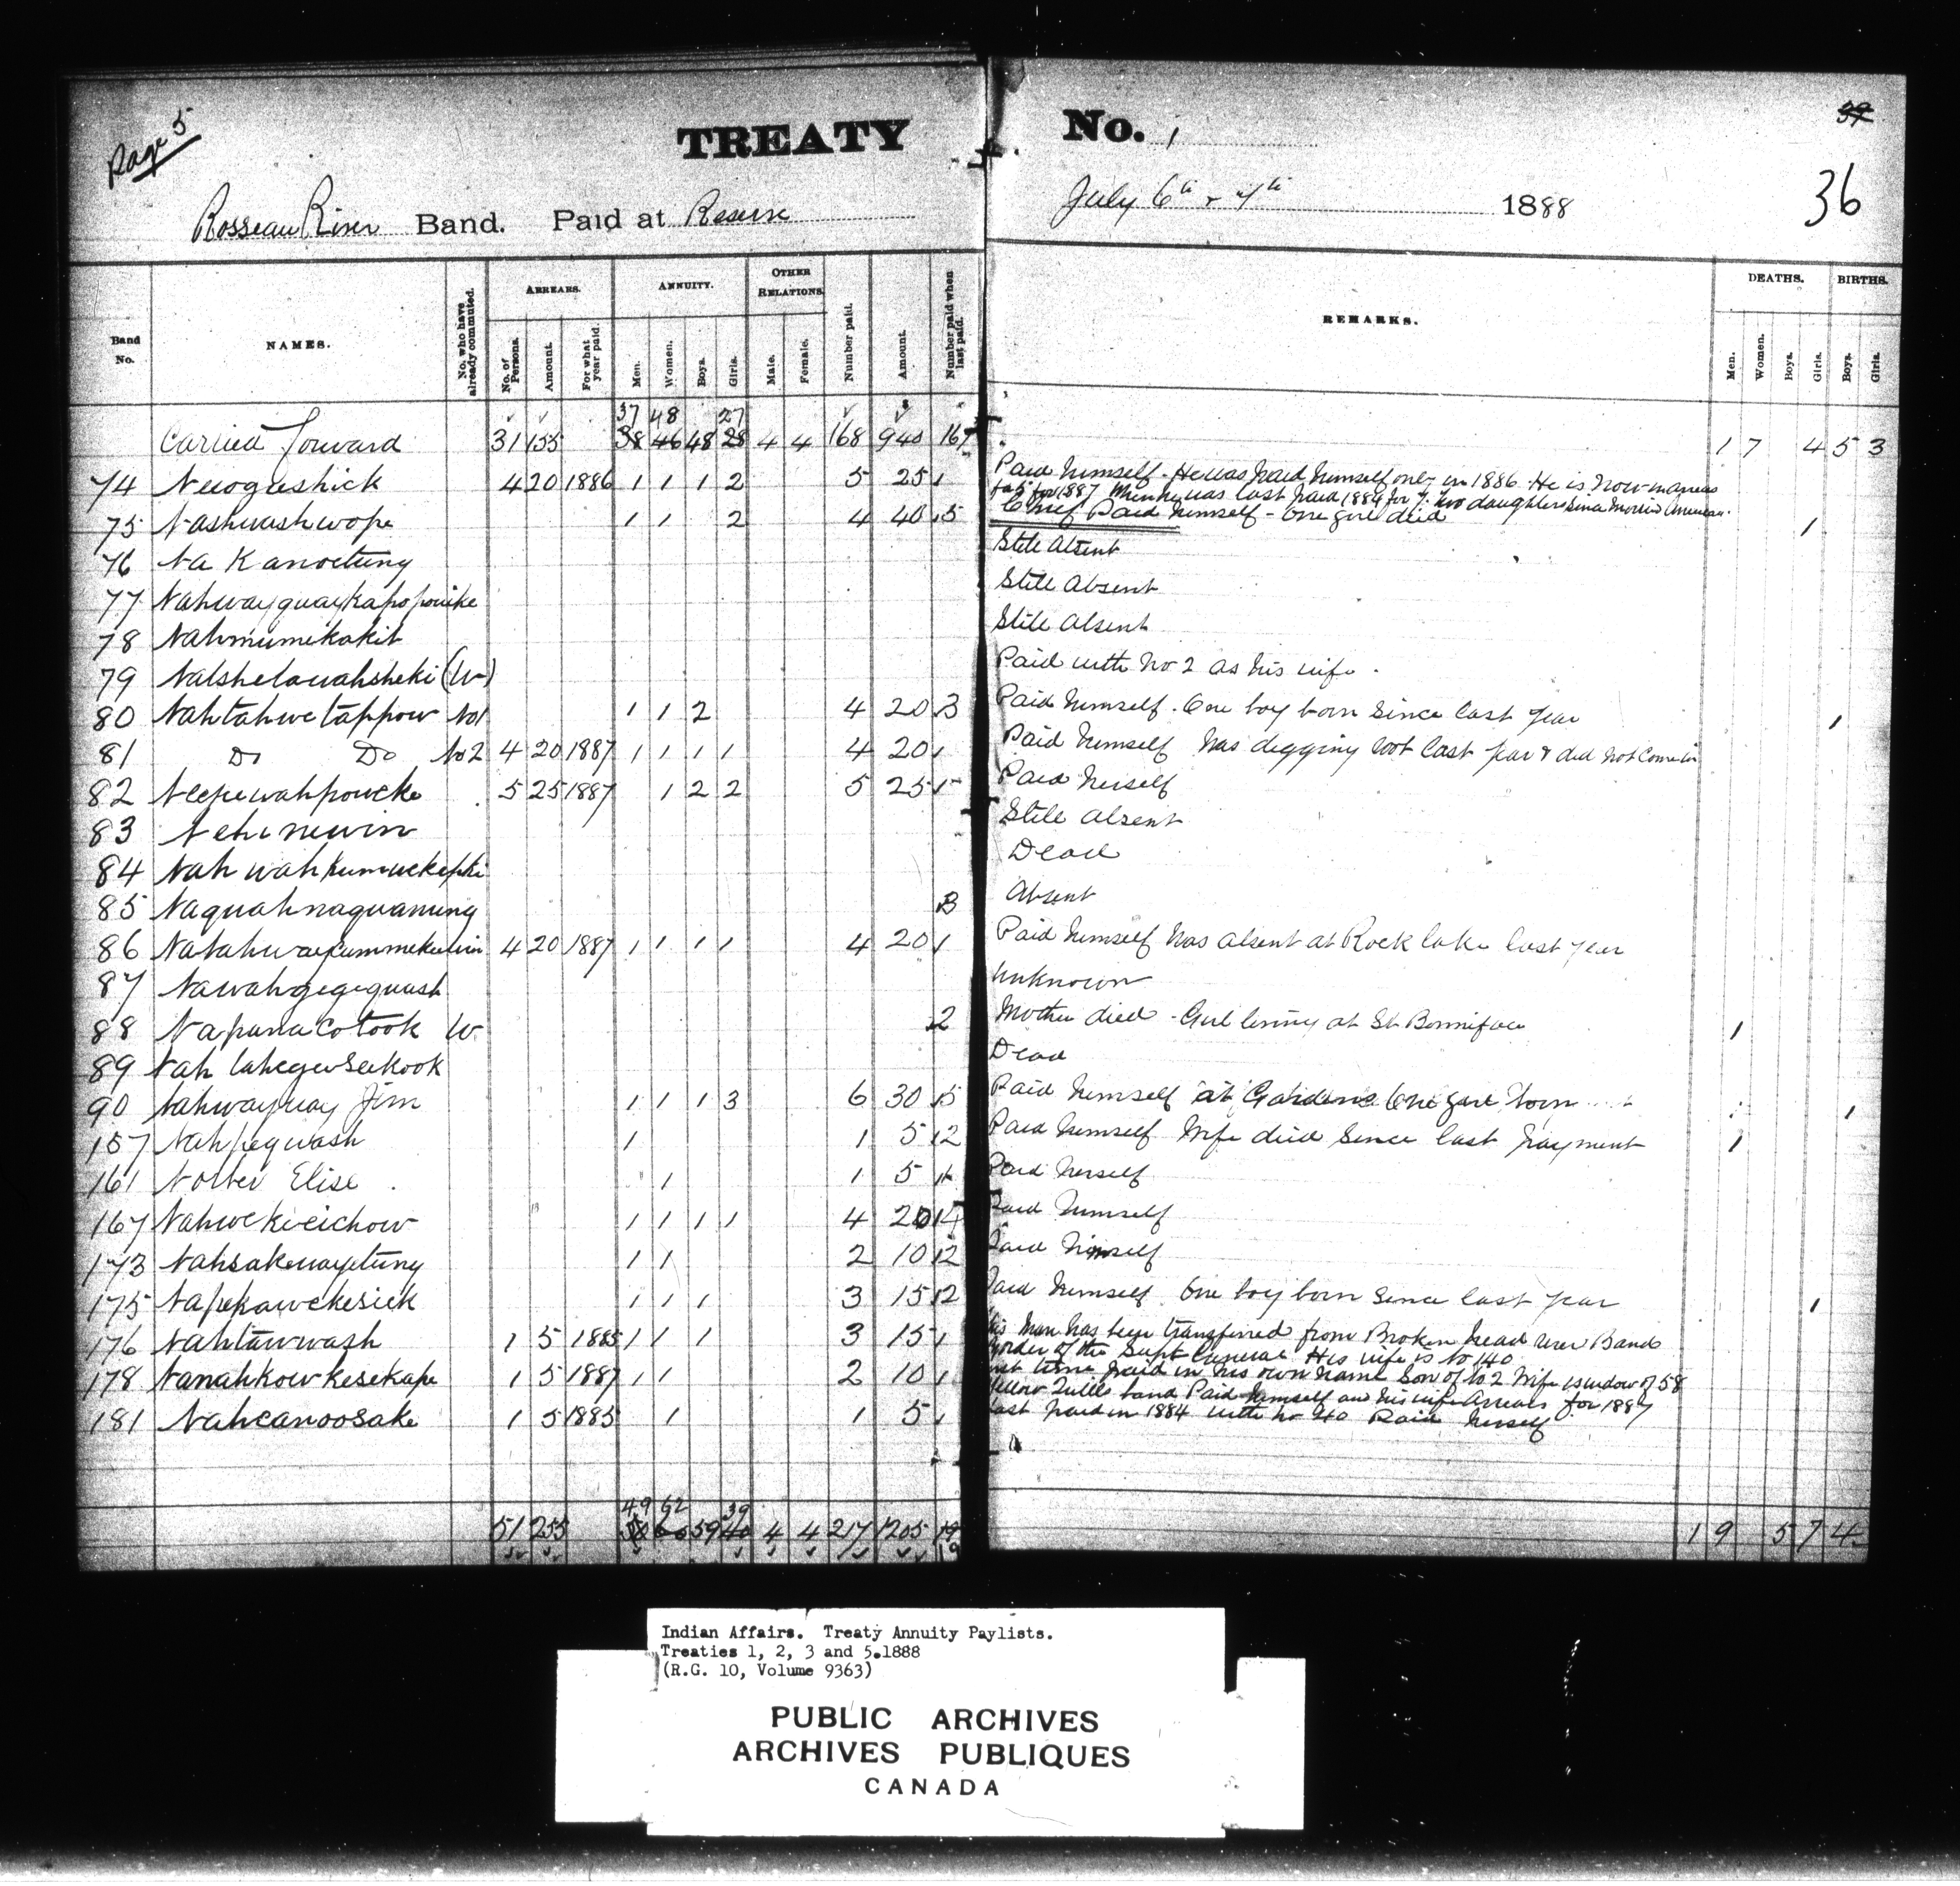 Page 5
TREATY No. 1
39
36
Rosseau River Band. Paid at Reserve July 6th & 7th 1888
Band No. NAMES. No. who have already commuted. ARREARS. No. of Persons. Amount. For what year paid. ANNUITY. Men. Women. Boys. Girls. OTHER RELATIONS. Male. Female. Number paid. Amount. Number paid when last paid. REMARKS. DEATHS. Men. Women. Boys. Girls. BIRTHS. Boys. Girls.
37 48 27
Carried forward 31 155 38 46 48 28 4 4 168 940 167 1 7 4 5 3
74 Neeogeeshick 4 20 1886 1 1 1 2 5 25 1 Paid himself - He was paid himself only in 1886. He is now in arrears
for 1887 When he was last paid 1884 for 7. Two daughters since Morris American.
75 Nashwashwope 1 1 2 4 40 5 Chief Paid himself - One girl died 1
76 Na Kanoetung Still Absent
77 Nahwayquaykapopouike Still Absent
78 Nahmumikakit Still Absent
79 Natshelawahsheki (W) Paid with No 2 as his wife.
80 Nahtahwetappow No1 1 1 2 4 20 3 Paid himself. One boy born since last year 1
81 Do Do No2 4 20 1887 1 1 1 1 4 20 1 Paid himself Was digging root last year & did not come in
82 Neepewahpoucke 5 25 1887 1 2 2 5 25 1 Paid herself
83 Nehinewin Still absent
84 Nah wah kumuckepki Dead
85 Naquahnaquanung 3 Absent
86 Natahwaycummekeewin 4 20 1887 1 1 1 1 4 20 1 Paid himself Was absent at Rock lake last year
87 Nawahgegequash Unknown
88 Napanacotook W. 2 Mother died - Girl living at St Bonniface 1
89 Nah tahegewseekook Dead
90 Nahwayquay Jim 1 1 1 3 6 30 5 Paid himself at Gardens One girl born 1
157 Nahpeywash 1 1 5 2 Paid himself Wife died since last payment 1
161 Norber Elise 1 1 5 Paid herself
167 Nahwekieichow 1 1 1 1 4 20 Paid himself
173 Nahsakewaytung 1 1 2 10 2 Paid himself
175 Napekawekesick 1 1 1 3 15 2 Paid himself. One boy born since last year 1
176 Nahtawwash 1 5 1885 1 1 1 3 15 1 Man has been transferred from Broken head River Band
order of the Supt General His wife is No 140
178 Nanahkowkesekape 1 5 1887 1 1 2 10 1 time paid in his own name Son of No 2 Wife is widow of 58
Yellow Quills band Paid himself and his wife Arrears for 1887
181 Nahcanoosake 1 5 1885 1 1 5 1 last paid in 1884 with No 40 Paid herself
49 62 39
51 255 59 40 4 4 217 1205 1 9 5 7 4
Indian Affairs. Treaty Annuity Paylists.
Treaties 1, 2, 3 and 5.1888
(R.G. 10, Volume 9363)
PUBLIC ARCHIVES
ARCHIVES PUBLIQUES
CANADA